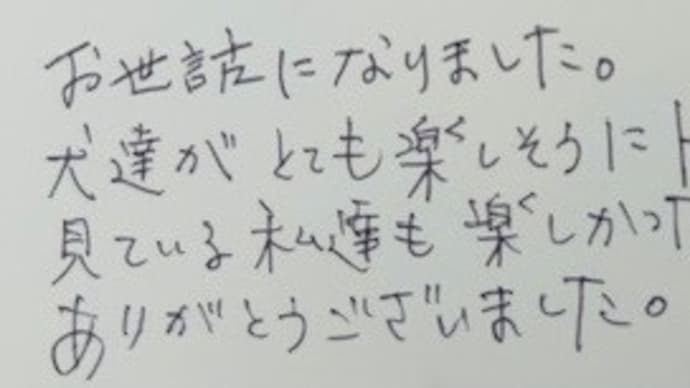 お世話になりました。
犬達がとても楽しそうに
見ている私達も楽しかっ
ありがとうございました。